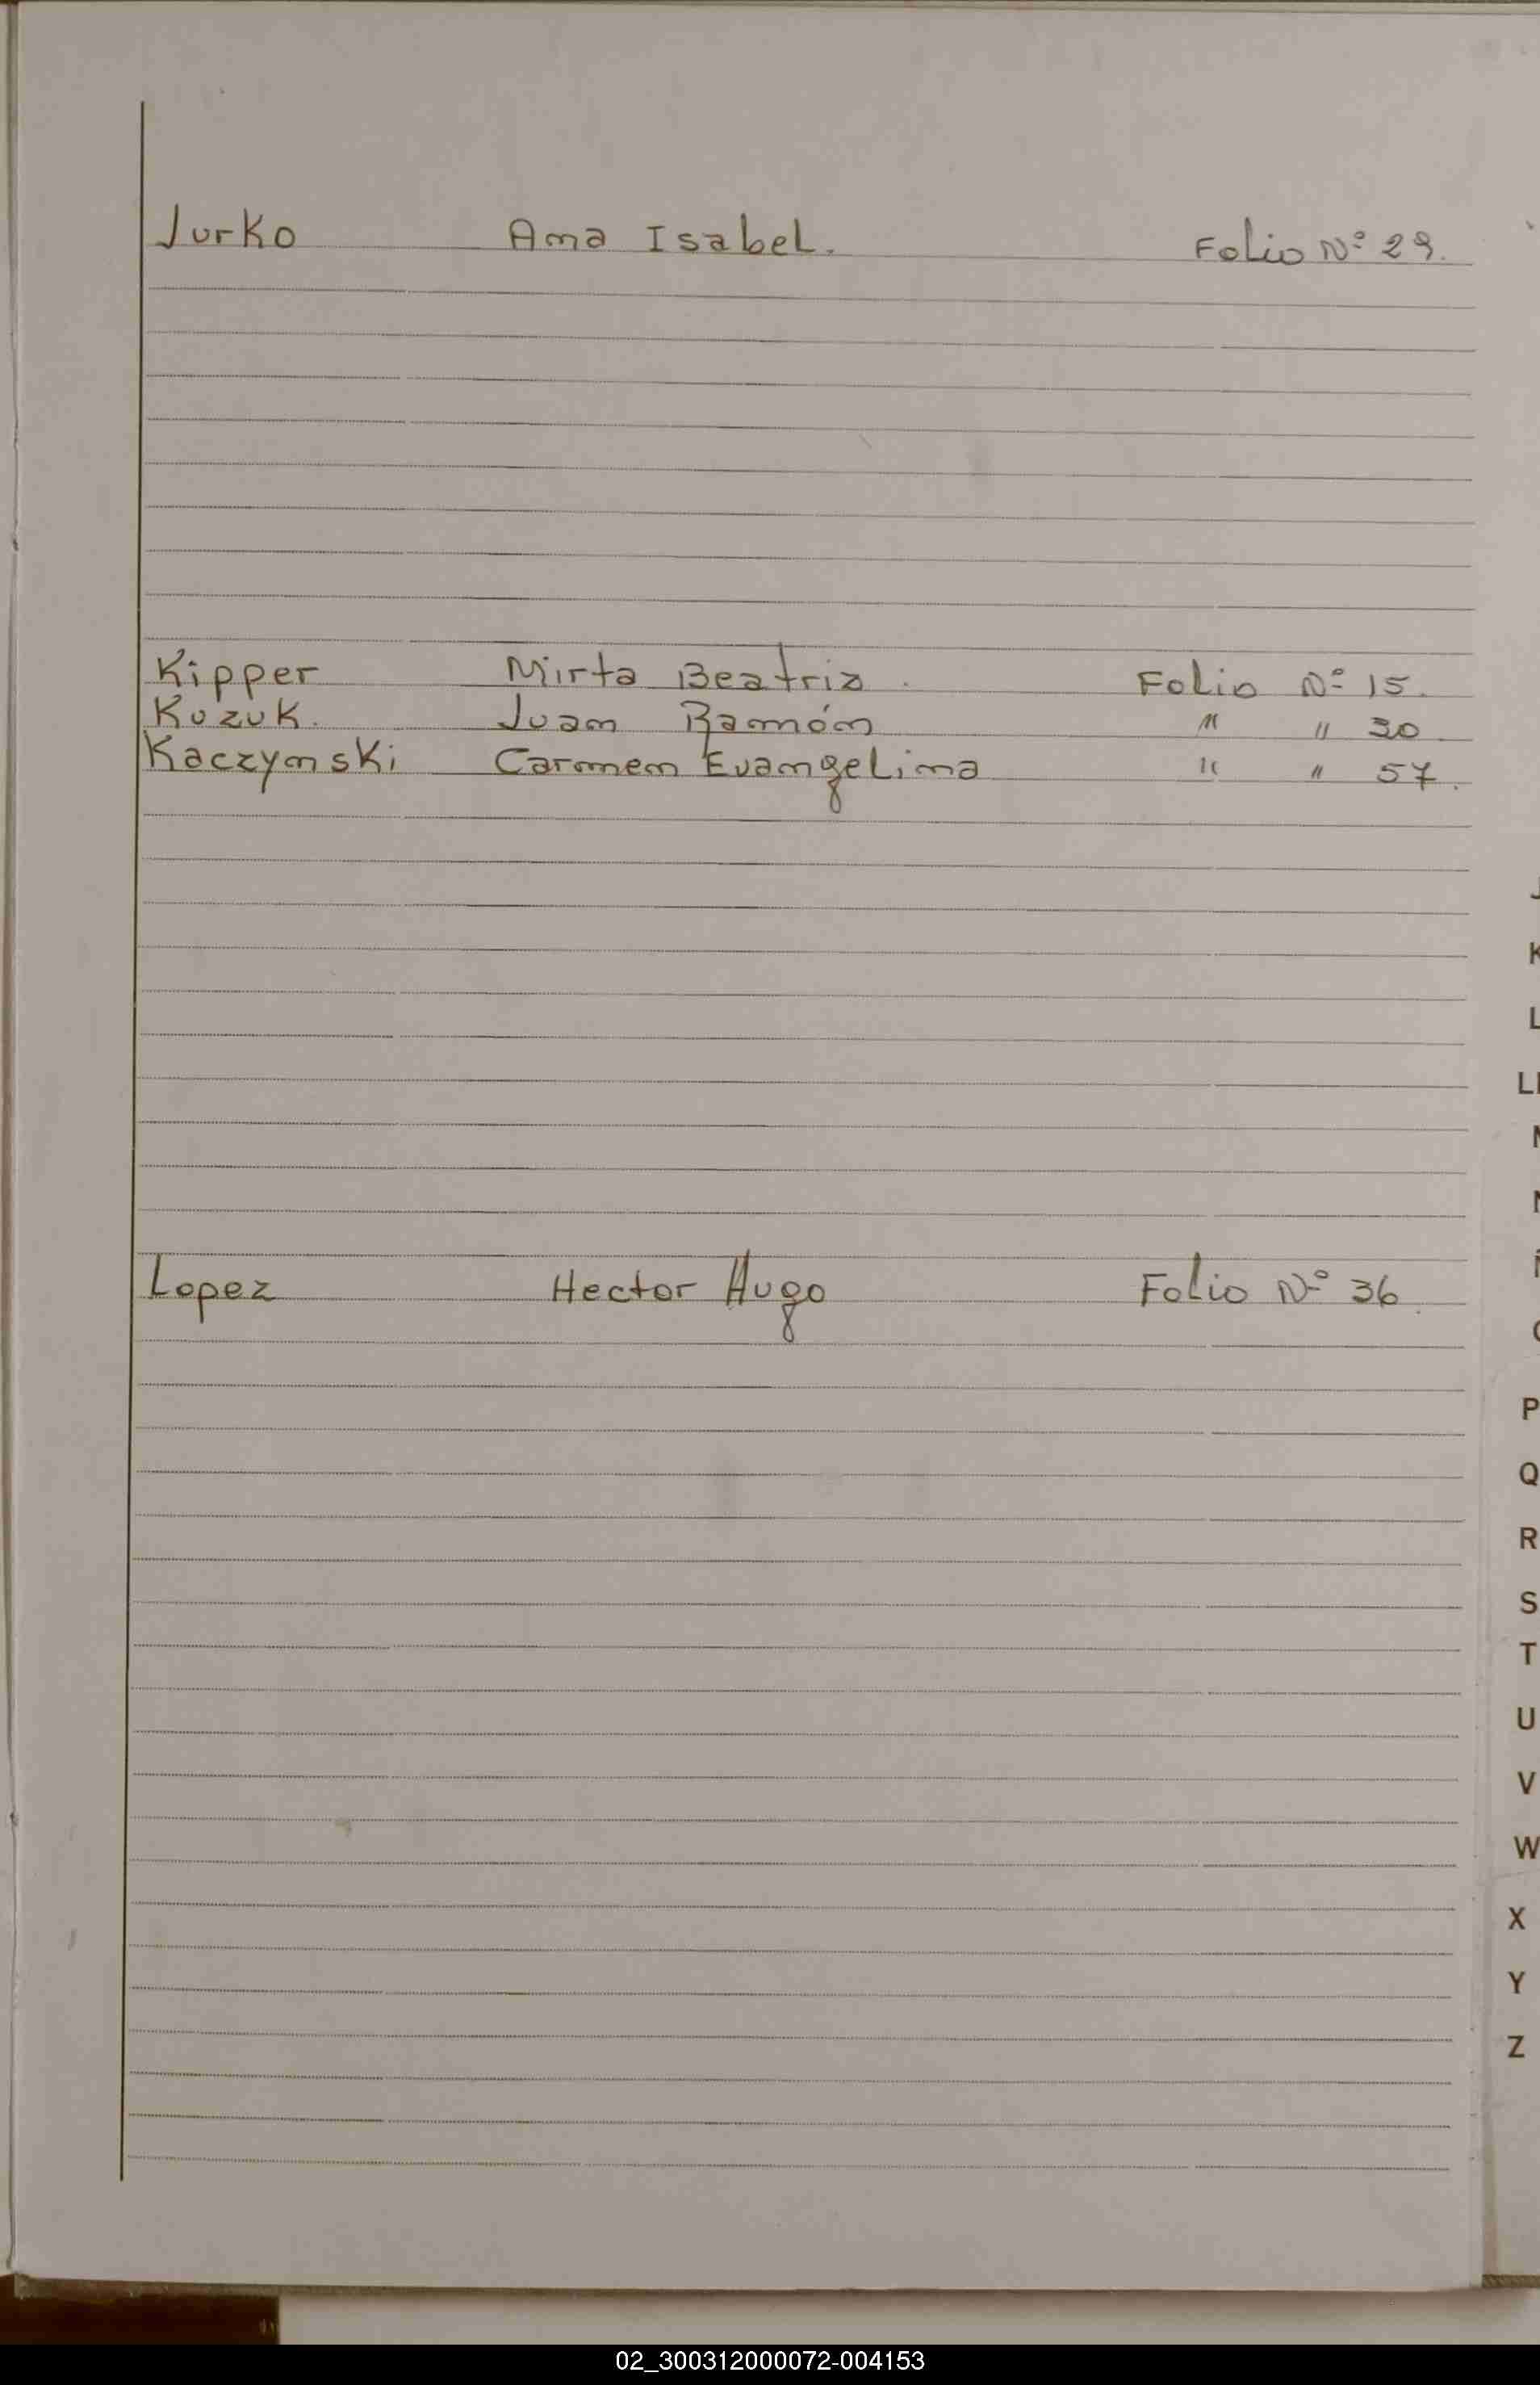 Jurko Ana Isabel. Folio Nº 29.
Kipper Mirta Beatriz. Folio Nº 15.
Kuzuk. Juan Ramón " " 30.
Kaczynski Carmen Evangelina " " 57.
Lopez Hector Hugo Folio Nº 36.
J
K
L
P
Q
R
S
T
U
V
W
X
Y
Z
02_300312000072-004153